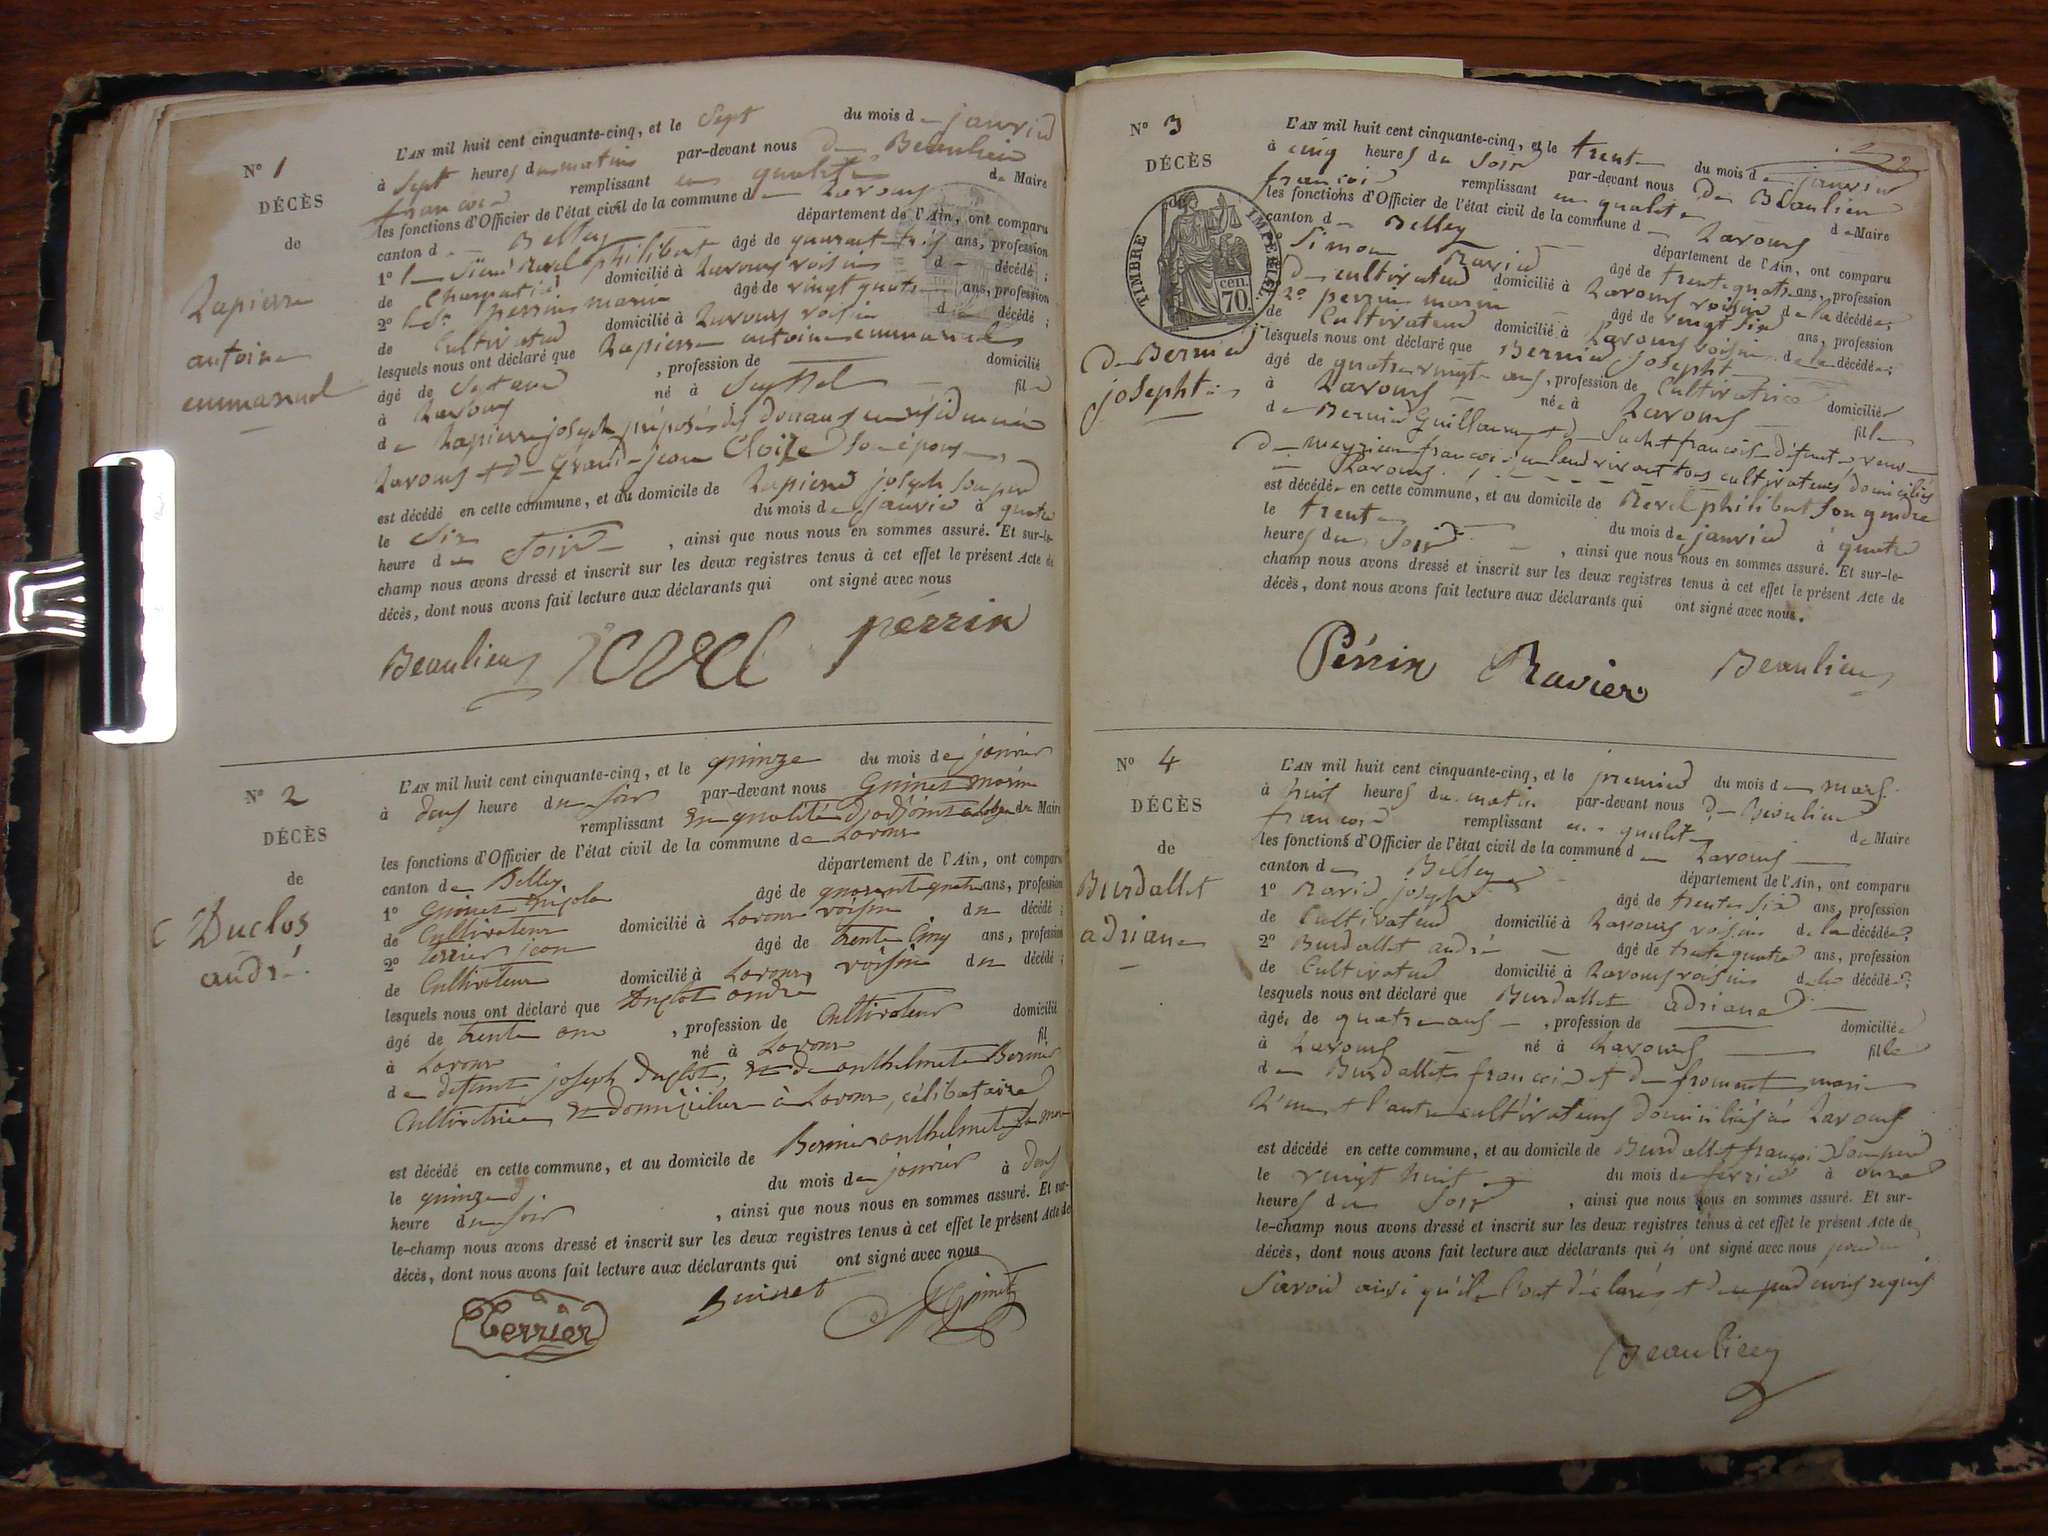 N° 1
DÉCÈS
de
Lapierre
antoine
emmanuel
L'AN mil huit cent cinquante-cinq, et le Sept du mois de janvier
à Sept heures du matin par-devant nous de Beaulieu
françois remplissant en qualité de Maire
les fonctions d'Officier de l'état civil de la commune de Lavours
canton de Belley département de l'Ain, ont comparu
1° le Revel philibert âgé de quarante ans, profession
de Charpentier domicilié à Lavours voisin d décédé;
2° perrin marin âgé de vingt quatre ans, profession
de Cultivateur domicilié à Lavours voisin d décédé;
lesquels nous ont déclaré que Lapierre antoine emmanuel
âgé de , profession de domicilié
à Lavours né à Seyssel fils
de Lapierre joseph préposé des douanes en résidence à
Lavours et de Grand-jean son épouse
est décédé en cette commune, et au domicile de Lapierre joseph son père
le Six du mois de janvier à quatre
heure du Soir , ainsi que nous nous en sommes assuré. Et sur-le-
champ nous avons dressé et inscrit sur les deux registres tenus à cet effet le présent Acte de
décès, dont nous avons fait lecture aux déclarants qui ont signé avec nous
Beaulieu Revel perrin
N° 2
DÉCÈS
de
Duclos
andré
L'AN mil huit cent cinquante-cinq, et le quinze du mois de janvier
à deux heure du soir par-devant nous Guinet marin
remplissant en qualité d'adjoint du Maire
les fonctions d'Officier de l'état civil de la commune de Lavour
canton de Belley département de l'Ain, ont comparu
1° Guinet âgé de quarante quatre ans, profession
de Cultivateur domicilié à Lavour voisin du décédé;
2° terrier jean âgé de trente Cinq ans, profession
de Cultivateur domicilié à Lavour voisin du décédé;
lesquels nous ont déclaré que Duclot andré
âgé de trente ans , profession de Cultivateur domicilié
à Lavour né à Lavour fil
de défunt joseph Duclot, et de anthelmette Bernier
Cultivatrice et domiciliée à Lavour, célibataire
est décédé en cette commune, et au domicile de Bernier anthelmette sa mère
le quinze du mois de janvier à deux
heure du soir , ainsi que nous nous en sommes assuré. Et sur-
le-champ nous avons dressé et inscrit sur les deux registres tenus à cet effet le présent Acte de
décès, dont nous avons fait lecture aux déclarants qui ont signé avec nous
Terrier Guinet
N° 3
DÉCÈS
de
TIMBRE IMPÉRIAL
70 cen.
Bernier
josepht
L'AN mil huit cent cinquante-cinq, et le trente du mois de janvier
à cinq heures du Soir par-devant nous De Beaulieu
françois remplissant en qualité de Maire
les fonctions d'Officier de l'état civil de la commune d Lavours
canton d Belley département de l'Ain, ont comparu
1° Simon Ravier âgé de trente quatre ans, profession
de cultivateur domicilié à Lavours voisin de la décédée;
2° perrin marin âgé de vingt six ans, profession
de Cultivateur domicilié à Lavours voisin de la décédée;
lesquels nous ont déclaré que Bernier josepht
âgé de quatre vingt ans, profession de Cultivatrice domiciliée
à Lavours née à Lavours fille
de Bernier Guillaume et de françoise défunts, veuve
de meyrieu françois tous cultivateurs domiciliés
à Lavours.
est décédée en cette commune, et au domicile de Revel philibert son gendre
le trente du mois de janvier à quatre
heures du Soir , ainsi que nous nous en sommes assuré. Et sur-le-
champ nous avons dressé et inscrit sur les deux registres tenus à cet effet le présent Acte de
décès, dont nous avons fait lecture aux déclarants qui ont signé avec nous.
Périn Ravier Beaulieu
N° 4
DÉCÈS
de
Burdallet
adriane
L'AN mil huit cent cinquante-cinq, et le premier du mois de mars
à huit heures du matin par-devant nous De Beaulieu
françois remplissant en qualité de Maire
les fonctions d'Officier de l'état civil de la commune d Lavours
canton de Belley département de l'Ain, ont comparu
1° Ravier joseph âgé de trente six ans, profession
de Cultivateur domicilié à Lavours voisin de la décédée;
2° Burdallet andré âgé de trente quatre ans, profession
de Cultivateur domicilié à Lavours voisin de la décédée;
lesquels nous ont déclaré que Burdallet adriane
âgée de quatre ans , profession de domiciliée
à Lavours né à Lavours fille
de Burdallet françois et de froment marie
L'un et l'autre cultivateurs domiciliés à Lavours
est décédé en cette commune, et au domicile de Burdallet françois son père
le vingt huit du mois de février à onze
heures du Soir , ainsi que nous nous en sommes assuré. Et sur-
le-champ nous avons dressé et inscrit sur les deux registres tenus à cet effet le présent Acte de
décès, dont nous avons fait lecture aux déclarants qui ont signé avec nous
Savoir ainsi qu'ils l'ont déclaré et de ce requis
Beaulieu